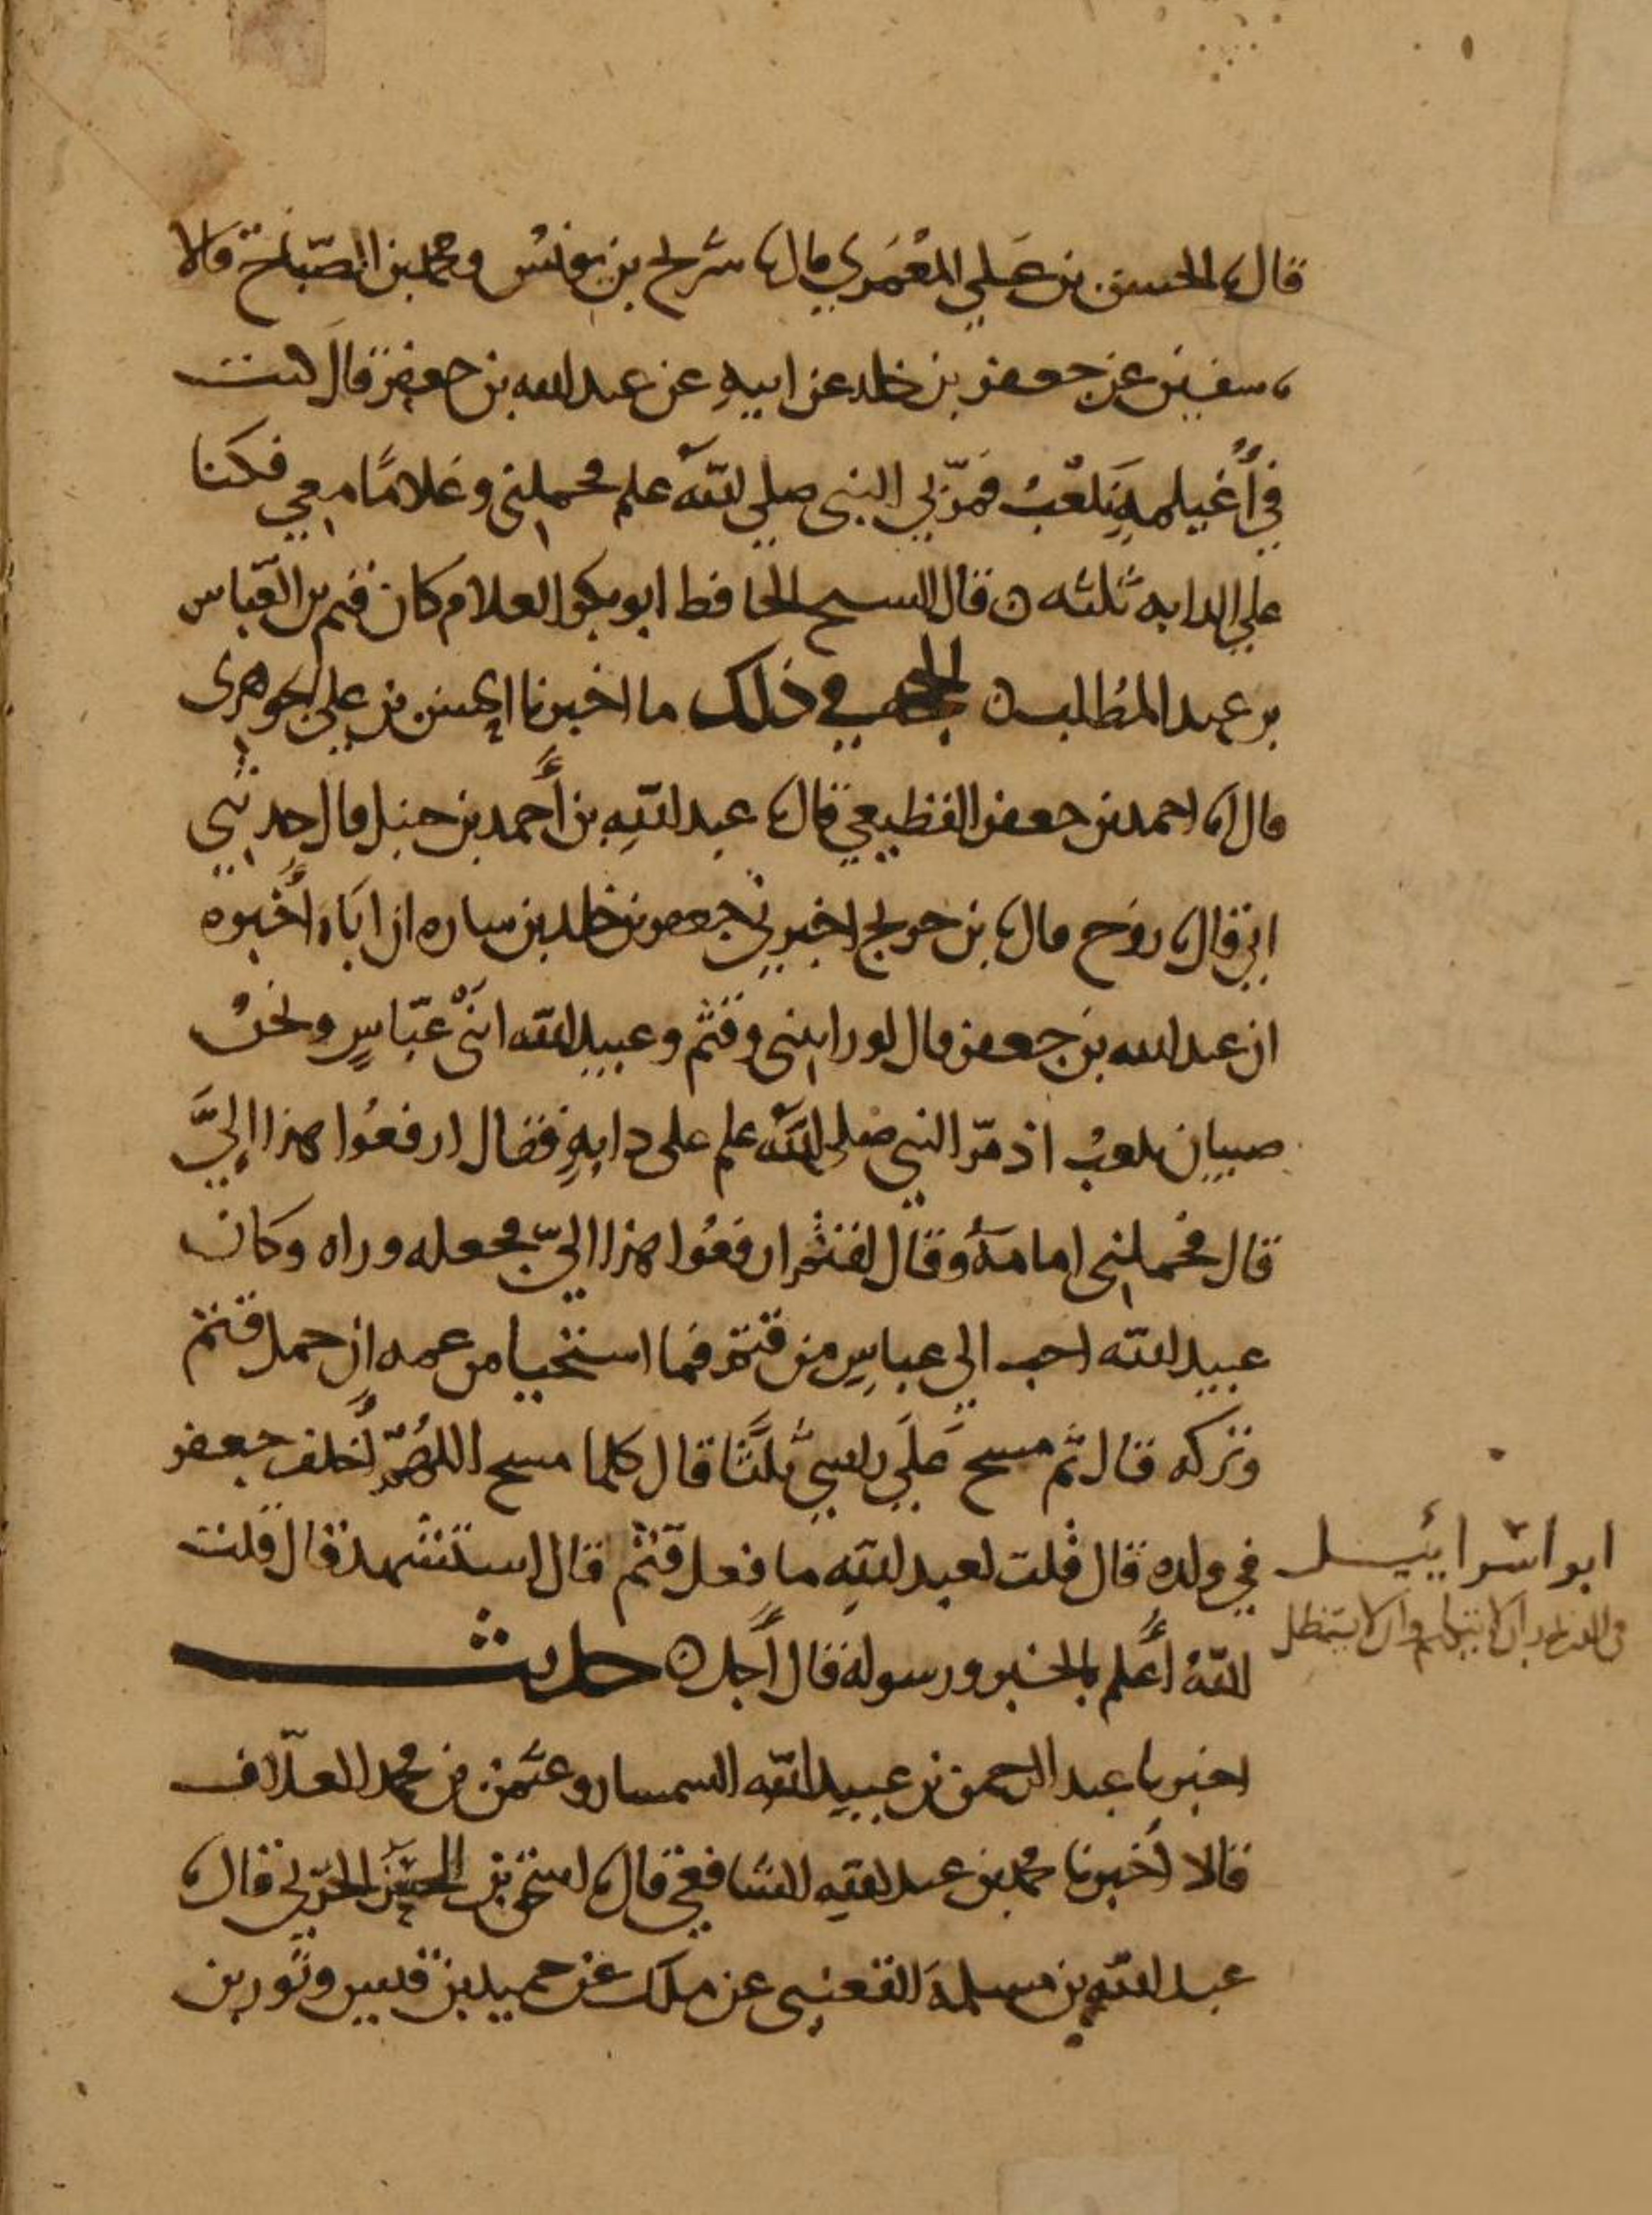 قال نا الحسن بن علي المعمري قال نا سريج بن يونس ومحمد بن الصباح قالا
نا سفين عن جعفر بن خلد عن ابيه عن عبد الله بن جعفر قال كنت
في أغيلمة نلعب فمر بي النبي صلى الله علم فحملني وغلاما معي فكنا
علي الدابه ثلثه ن قال الشيخ الحافظ ابو بكر الغلام كان قثم بن العباس
بن عبد المطلب ن الحجه في ذلك ما اخبرنا الحسن بن علي الجوهري
قال نا احمد بن جعفر القطيعي قال نا عبد الله بن أحمد بن حنبل قال حدثني
ابي قال نا روح قال نا بن جريج اخبرني جعفر بن خلد بن ساره ان اباه أخبره
ان عبد الله بن جعفر قال لو رايتني وقثم وعبيد الله ابنى عباس ونحن
صبيان نلعب اذ مر النبي صلى الله علم على دابة فقال ارفعوا هذا إلي
قال فحملني امامه وقال لقثم ارفعوا هذا الي فجعله وراه وكان
عبيد الله احب الي عباس من قثم فما استحيا من عمه ان حمل قثم
وتركه قال ثم مسح علي راسي ثلثا قال كلما مسح اللهم أخلف جعفر
في ولده قال قلت لعبد الله ما فعل قثم قال استشهد قال قلت
الله أعلم بالخبر ورسوله قال أجل ن حديث
اخبرنا عبد الرحمن بن عبيد الله السمسار وعثمن بن محمد العلاف
قالا أخبرنا محمد بن عبد الله الشافعي قال نا اسحق بن الحسن الحربي قال نا
عبد الله بن مسلمة القعنبي عن ملك عن حميد بن قيس وثور بن
ابو اسرائيل
ان لا يتكلم وان لا يستظل